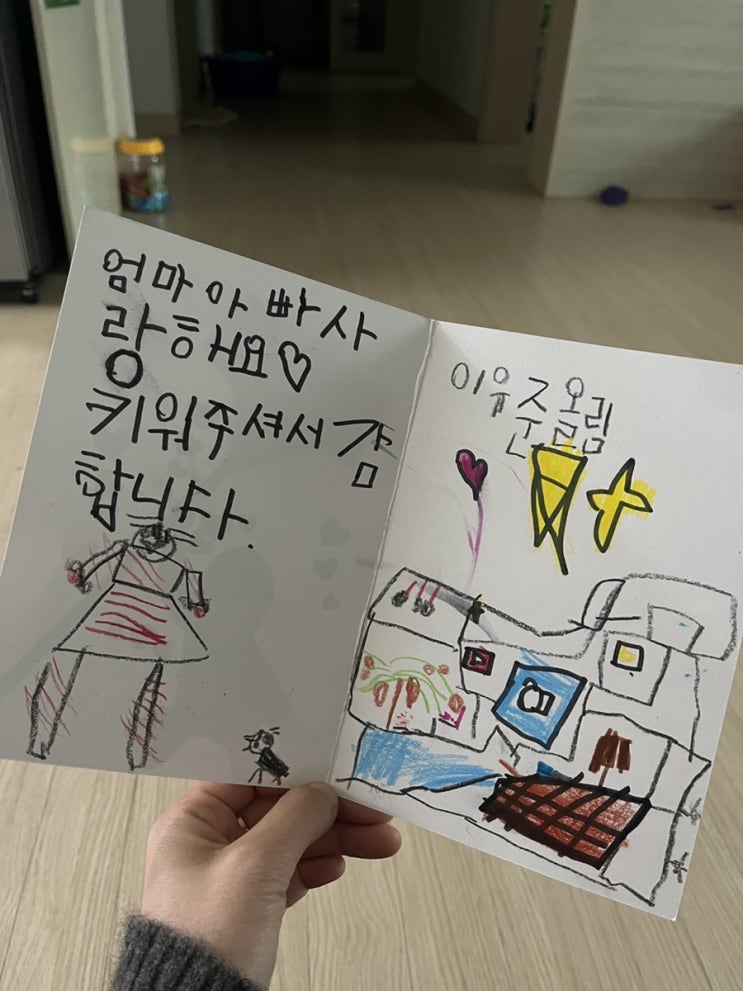 엄마 아빠사
랑해요♡
키워주셔서 감
합니다.
이유준올림